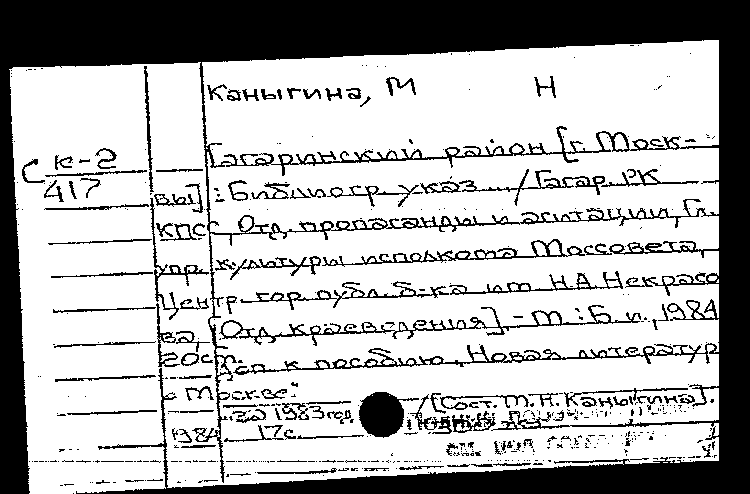 Каныгина, М Н
С к-2
417
Гагаринский район [г. Моск-
вы] : Библиогр. указ... / Гагар. РК
КПСС, Отд. пропаганды и агитации, Гл.
упр. культуры исполкома Моссовета,
Центр. гор. публ. б-ка им. Н.А. Некрасо
ва, [Отд. краеведения]. - М. : Б. и., 1984
20 см.
Доп. к пособию „Новая литератур
о Москве"
за 1983 год / [Сост. М. Н. Каныгина].
1984. 17 с.
Полный
см. под